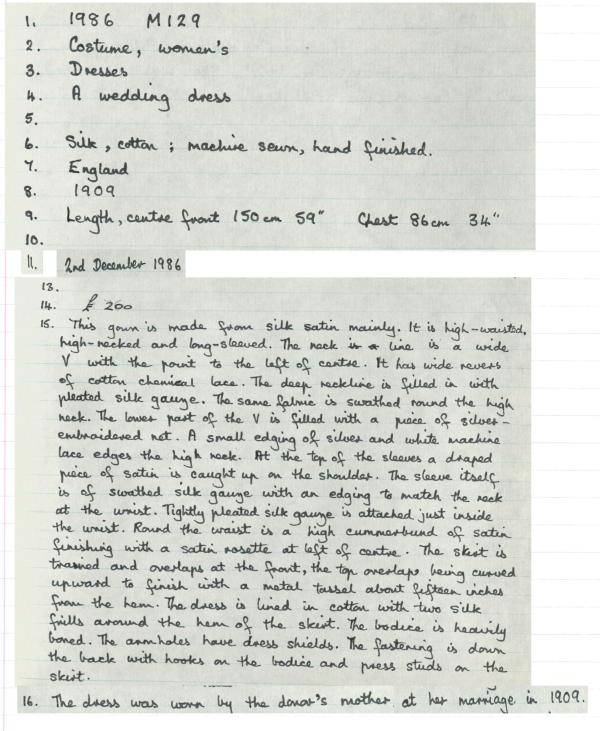 1. 1986 M129
2. Costume, women's
3. Dresses
4. A wedding dress
5.
6. Silk, cotton; machine sewn, hand finished.
7. England
8. 1909
9. Length, centre front 150cm 59" Chest 86cm 34"
10.
11. 2nd December 1986
13.
14. £ 200
15. This gown is made from silk satin mainly. It is high-waisted,
high-necked and long-sleeved. The neck line is a wide
V with the point to the left of centre. It has wide revers
of cotton chemical lace. The deep neckline is filled in with
pleated silk gauze. The same fabric is swathed round the high
neck. The lower part of the V is filled with a piece of silver-
embroidered net. A small edging of silver and white machine
lace edges the high neck. At the top of the sleeves a draped
piece of satin is caught up on the shoulder. The sleeve itself
is of swathed silk gauze with an edging to match the neck
at the wrist. Tightly pleated silk gauze is attached just inside
the wrist. Round the waist is a high cummerbund of satin
finishing with a satin rosette at left of centre. The skirt is
trained and overlaps at the front, the top overlap being curved
upward to finish with a metal tassel about fifteen inches
from the hem. The dress is lined in cotton with two silk
frills around the hem of the skirt. The bodice is heavily
boned. The armholes have dress shields. The fastening is down
the back with hooks on the bodice and press studs on the
skirt.
16. The dress was worn by the donor's mother at her marriage in 1909.